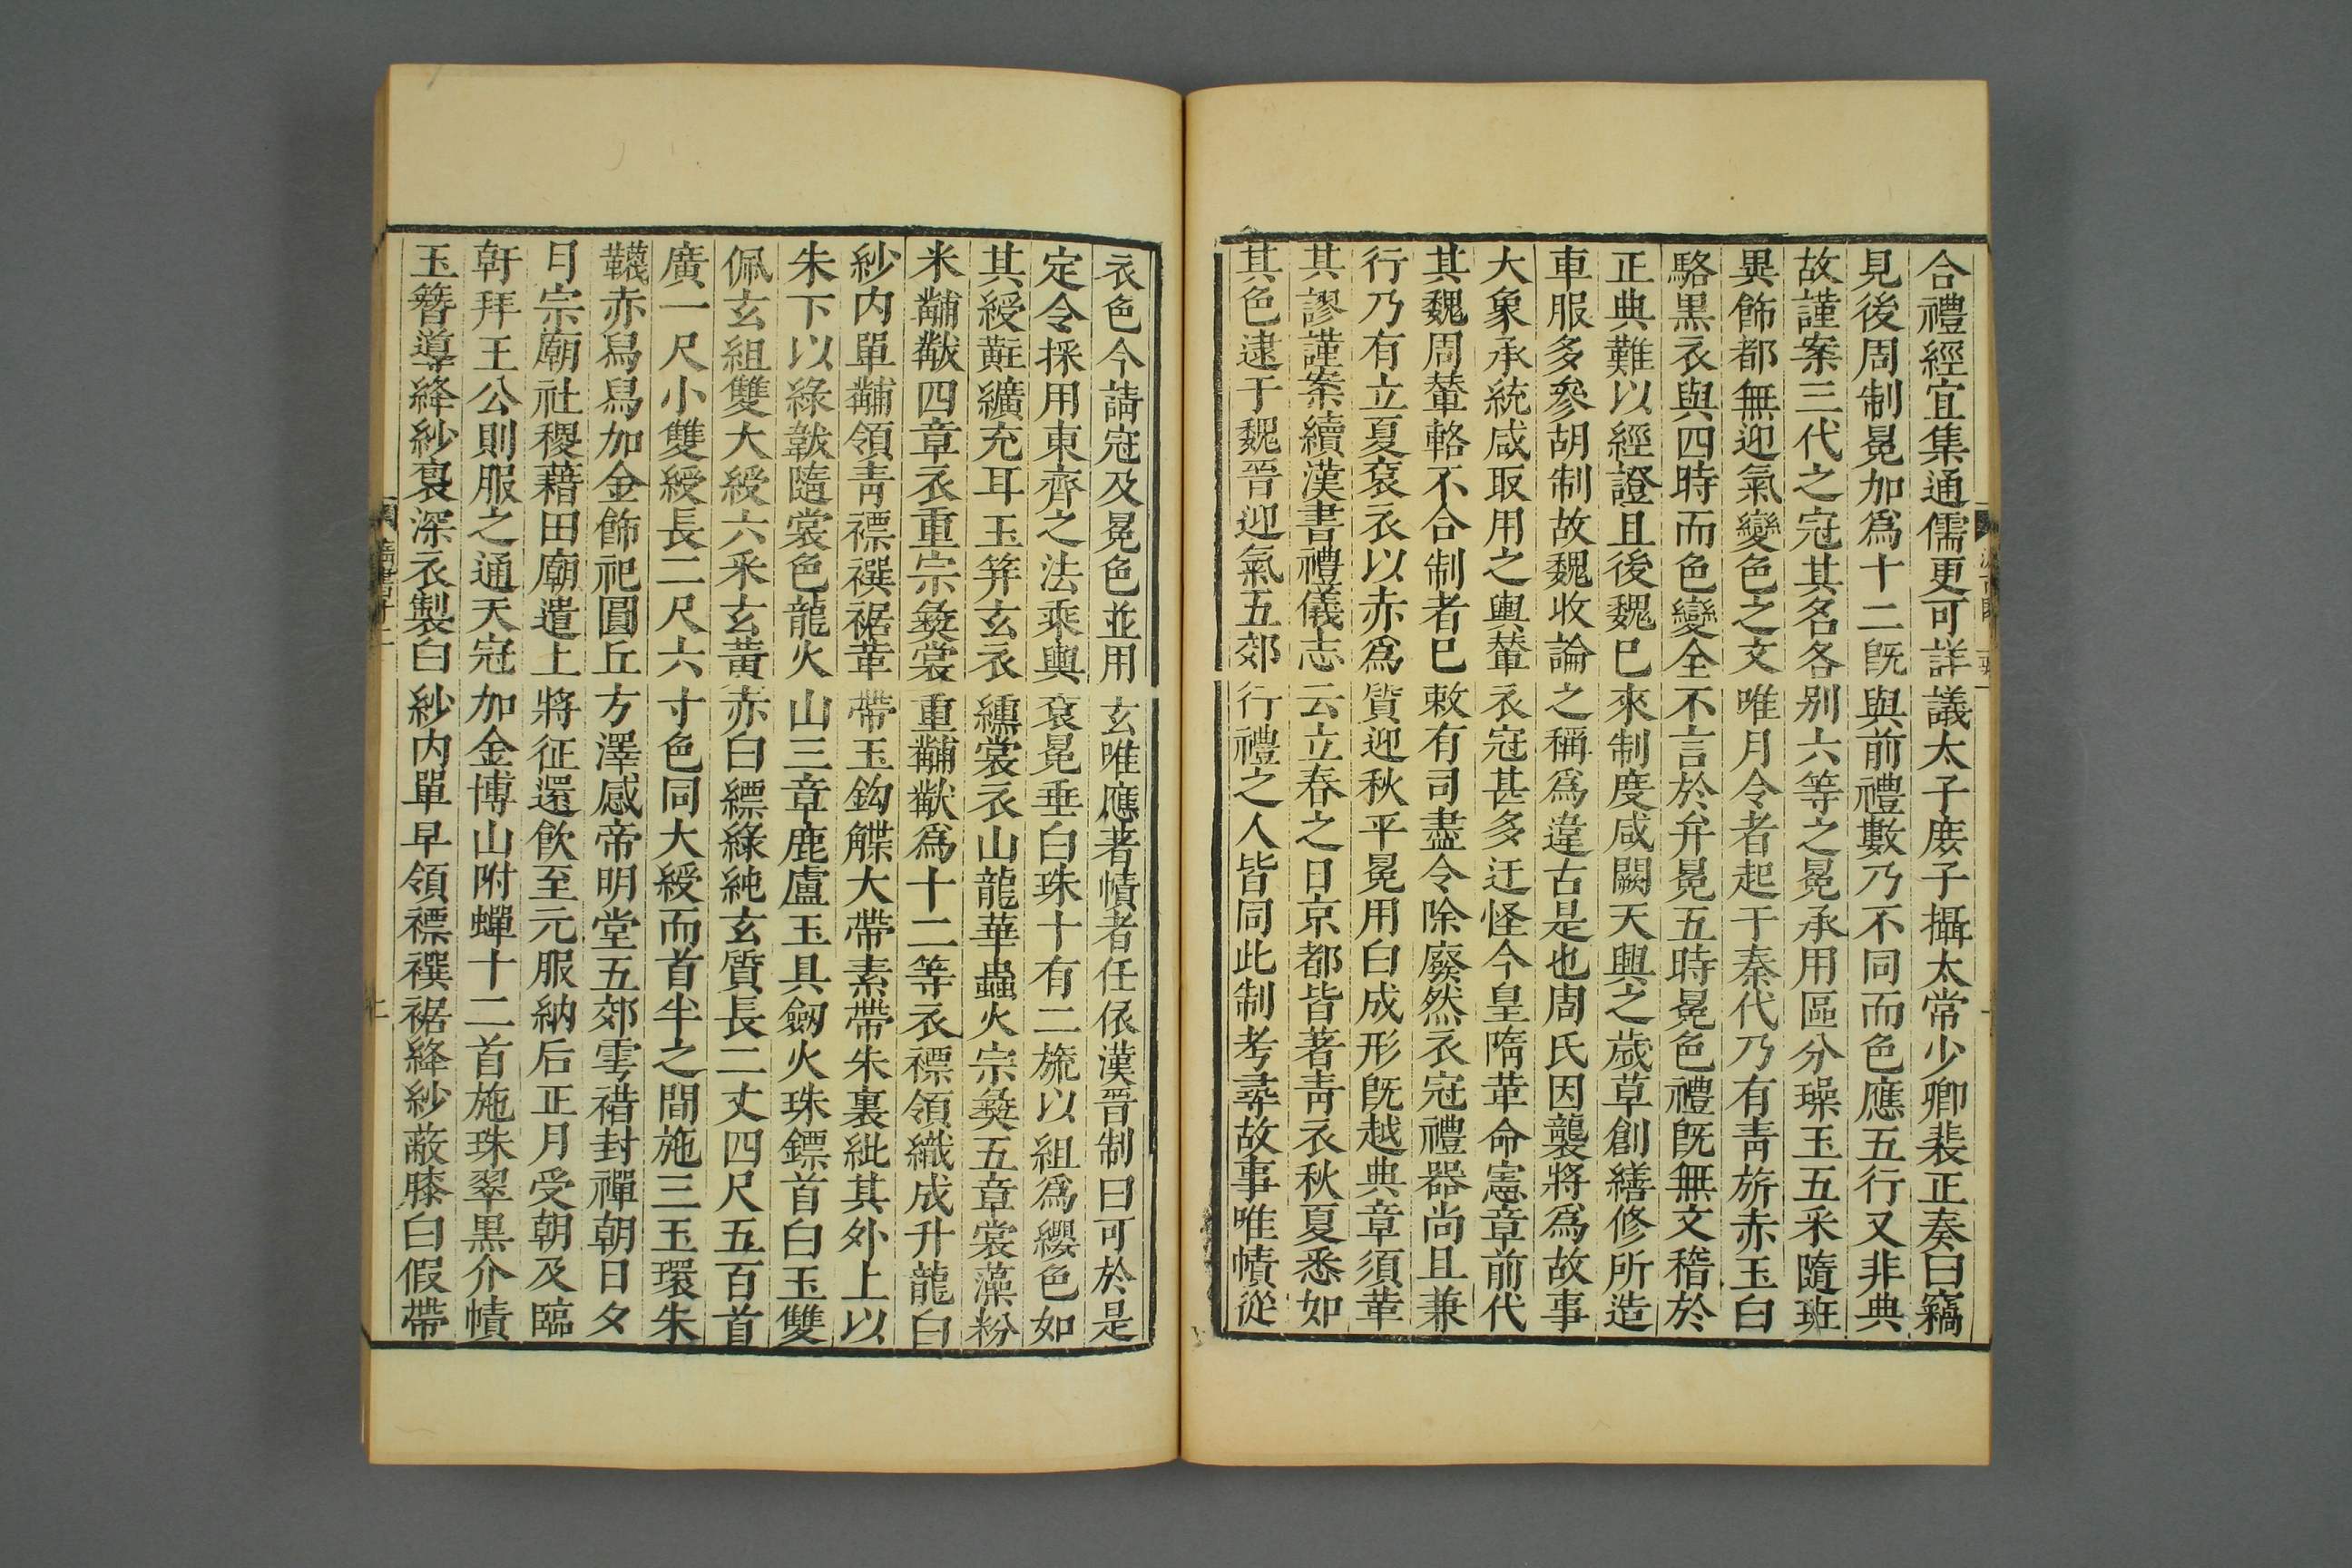 合禮經宜集通儒更可詳議太子庶子攝太常少卿裴正奏曰竊
見後周制冕加爲十二旣與前禮數乃不同而色應五行又非典
故謹案三代之冠其名各别六等之冕承用區分璪玉五采隨班
異飾都無迎氣變色之文唯月令者起于秦代乃有靑旂赤玉白
駱黑衣與四時而色變全不言於弁冕五時冕色禮旣無文稽於
正典難以經證且後魏巳來制度咸闕天興之歲草創繕修所造
車服多參胡制故魏收論之稱爲違古是也周氏因襲將爲故事
大象承統咸取用之輿輦衣冠甚多迂怪今皇隋革命憲章前代
其魏周輦輅不合制者巳敕有司盡令除廢然衣冠禮器尚且兼
行乃有立夏衮衣以赤爲質迎秋平冕用白成形旣越典章須革
其謬謹案續漢書禮儀志云立春之日京都皆著靑衣秋夏悉如
其色逮于魏晉迎氣五郊行禮之人皆同此制考尋故事唯幘從
衣色今請冠及冕色並用玄唯應著幘者任依漢晉制曰可於是
定令採用東齊之法乘輿衮冕垂白珠十有二旒以組爲纓色如
其綬黈纊充耳玉筓玄衣纁裳衣山龍華蟲火宗彝五章裳藻粉
米黼黻四章衣重宗彝裳重黼黻爲十二等衣褾領織成升龍白
紗内單黼領靑褾襈裾革帶玉鈎䚢大帶素帶朱裏紕其外上以
朱下以綠韍隨裳色龍火山三章鹿盧玉具劒火珠鏢首白玉雙
佩玄組雙大綬六采玄黃赤白縹綠純玄質長二丈四尺五百首
廣一尺小雙綬長二尺六寸色同大綬而首半之間施三玉環朱
韈赤舄舄加金飾祀圓丘方澤感帝明堂五郊雩䄍封禪朝日夕
月宗廟社稷藉田廟遣上將征還飮至元服納后正月受朝及臨
軒拜王公則服之通天冠加金博山附蟬十二首施珠翠黑介幘
玉簪導絳紗袍深衣製白紗内單皁領褾襈裾絳紗蔽膝白假帶